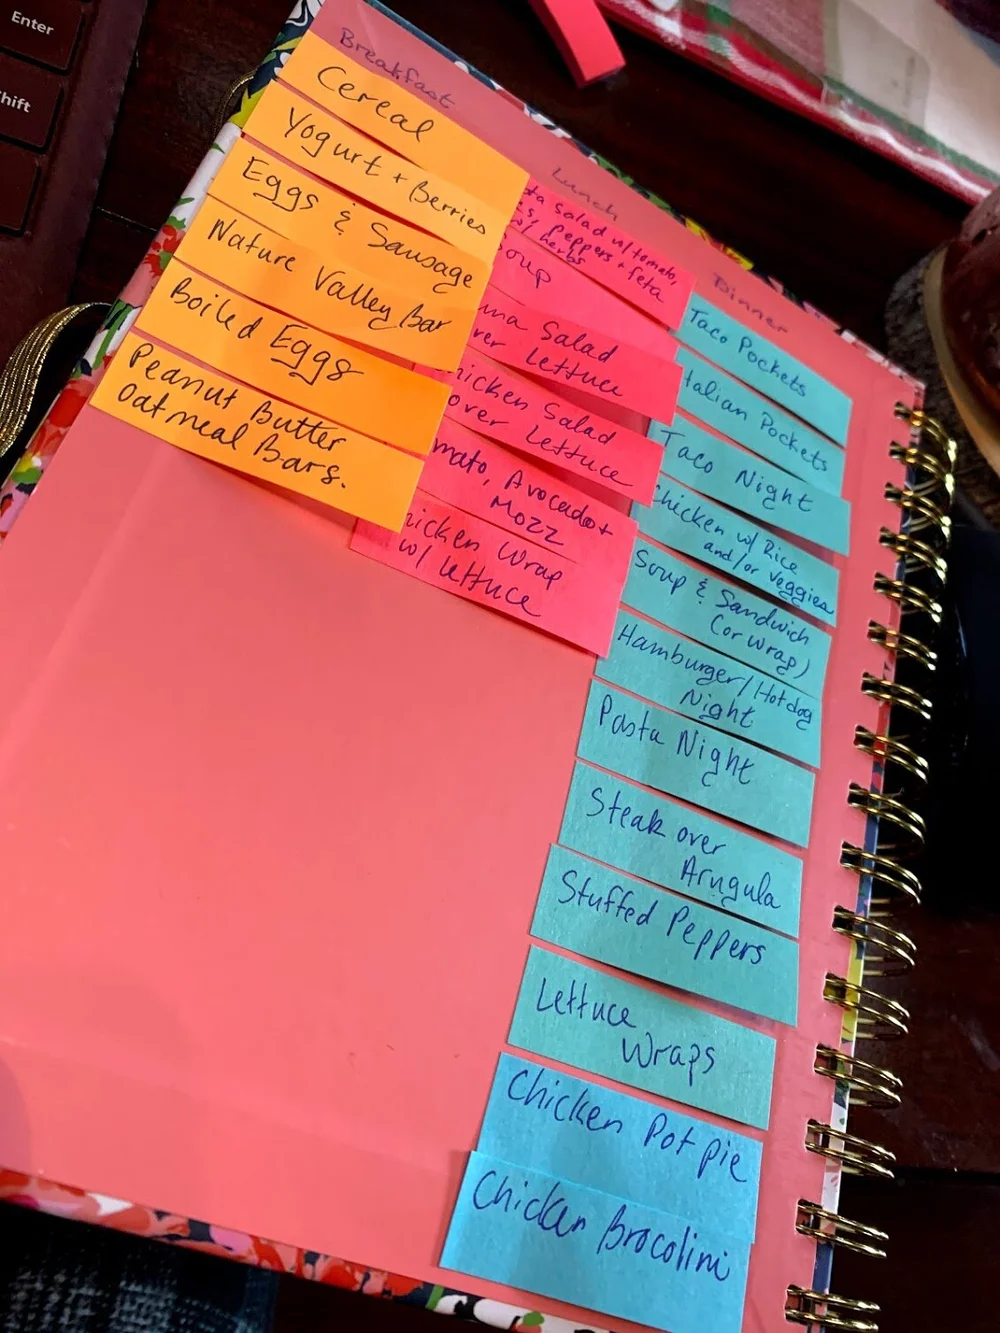 Enter
Shift
Breakfast
Cereal
Yogurt + Berries
Eggs & Sausage
Nature Valley Bar
Boiled Eggs
Peanut Butter
Oatmeal Bars.
Lunch
ta Salad w/ tomato,
s, Peppers + feta
w/ herbs
oup
una Salad
ver Lettuce
hicken Salad
over Lettuce
mato, Avocado +
Mozz
hicken Wrap
w/ lettuce
Dinner
Taco Pockets
Italian Pockets
Taco Night
Chicken w/ Rice
and/or Veggies
Soup & Sandwich
(or wrap)
Hamburger/Hotdog
Night
Pasta Night
Steak over
Arugula
Stuffed Peppers
Lettuce
Wraps
Chicken Pot pie
Chicken Brocolini